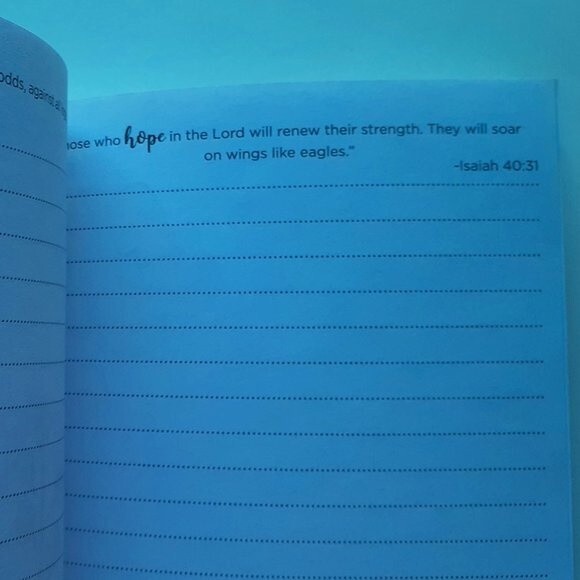 odds, against
hope in the Lord will renew their strength. They will soar
on wings like eagles."
-Isaiah 40:31